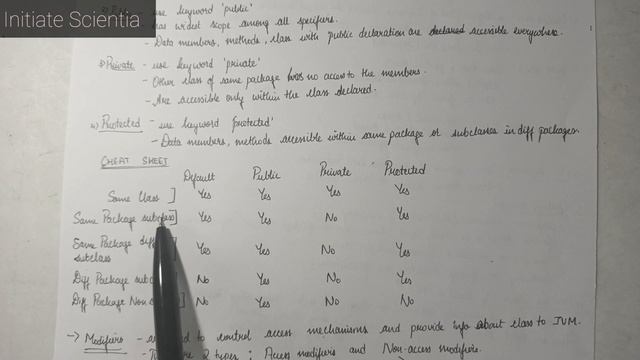 Initiate Scientia
use keyword 'public'
has widest scope among all specifiers.
- Data members, methods, class with public declaration are declared accessible everywhere.
Private - use keyword 'private'
- Other class of same package has no access to the members.
- Are accessible only within the class declared.
Protected - use keyword 'protected'
- Data members, methods accessible within same package or subclasses in diff packages.
CHEAT SHEET
Default Public Private Protected
Same Class ] Yes Yes Yes Yes
Same Package subclass ] Yes Yes No Yes
Same Package diff ] Yes Yes No Yes
subclass
Diff Package No Yes No Yes
Diff Package Non ] No Yes No No
→ Modifiers - to control access mechanisms and provide info about class to JVM.
2 types; Access modifiers and Non-access modifiers.